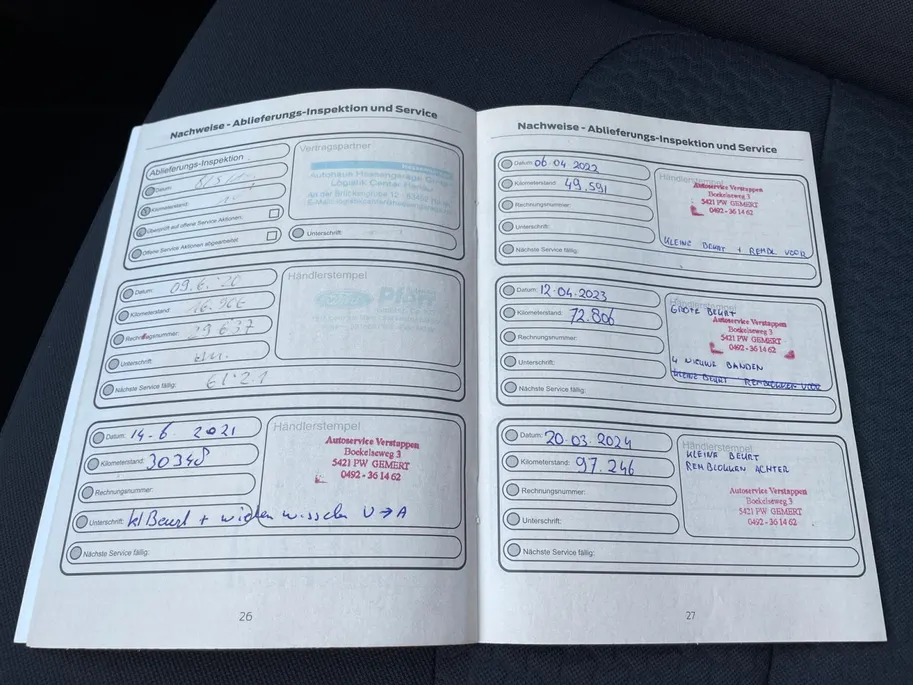 Nachweise - Ablieferungs-Inspektion und Service
Ablieferungs-Inspektion
Datum:
Kilometerstand:
Überprüft auf offene Service Aktionen:
Offene Service Aktionen abgearbeitet:
Vertragspartner
Autohaus
Logistik Center
Unterschrift:
Datum: 09.6. 20
Kilometerstand: 16.906
Rechnungsnummer: 29637
Unterschrift
Nächste Service fällig:
Händlerstempel
Datum: 14-6 2021
Kilometerstand: 30348
Rechnungsnummer:
Unterschrift: kl Beurt + wielen wisselen V → A
Nächste Service fällig:
Händlerstempel
Autoservice Verstappen
Boekelseweg 3
5421 PW GEMERT
0492 - 36 14 62
26
Nachweise - Ablieferungs-Inspektion und Service
Datum: 06.04 2022
Kilometerstand: 49.591
Rechnungsnummer:
Unterschrift:
Nächste Service fällig:
Händlerstempel
Autoservice Verstappen
Boekelseweg 3
5421 PW GEMERT
0492 - 36 14 62
KLEINE BEURT + REMBL VOOR
Datum: 12.04.2023
Kilometerstand: 72.806
Rechnungsnummer:
Unterschrift:
Nächste Service fällig:
Händlerstempel
GROTE BEURT
Autoservice Verstappen
Boekelseweg 3
5421 PW GEMERT
0492 - 36 14 62
4 NIEUWE BANDEN
KLEINE BEURT REMBLOKKEN VOOR
Datum: 20.03.2024
Kilometerstand: 97.246
Rechnungsnummer:
Unterschrift:
Nächste Service fällig:
Händlerstempel
KLEINE BEURT
REMBLOKKEN ACHTER
Autoservice Verstappen
Boekelseweg 3
5421 PW GEMERT
0492 - 36 14 62
27